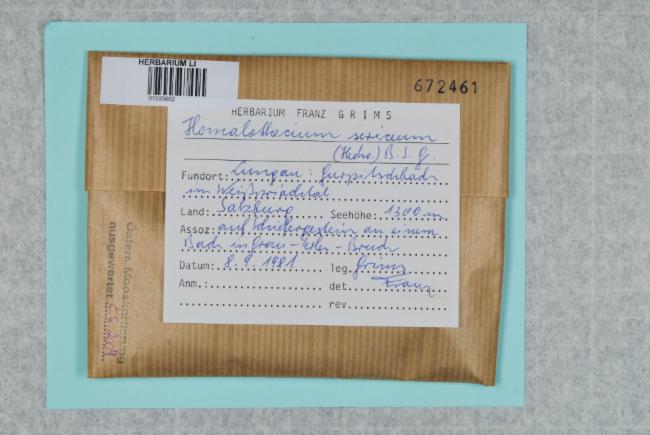 HERBARIUM LI
672461
HERBARIUM FRANZ GRIMS
Homalothecium sericeum
(Hedw.) B.S.G.
Fundort: Lungau: Gurpitschbach
im Weißpriachtal
Land: Salzburg Seehöhe: 1300 m
Assoz: auf Schiefergestein an einem
Bach in Grau-Erlen-Bruch
Datum: 8.9.1981 leg. Grims
Anm.: det. Franz
rev.
Österr. Mooskartierung
ausgewertet